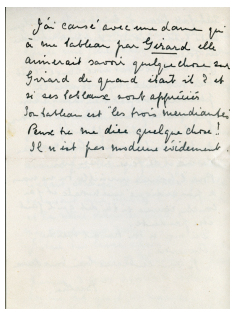 J'ai causé avec une dame qui
à un tableau par Gérard elle
aimerait savoir quelque chose sur
Gérard de quand était il ? et
si ses tableaux sont appréciés
Son tableau est "les trois mendiantes"
Peux tu me dire quelque chose !
Il n'est pas moderne évidement